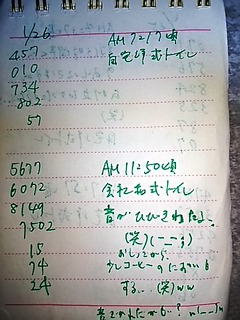 1/26
457 AM 7:17頃
010 自宅洋式トイレ
734
802
57
5677 AM 11:50頃
6072 会社 式トイレ
8149 音がひびきわたるよ
7502 (笑)(-_-;)
15 おしっこから
74 コーヒーのにおいも
24 する… (笑)ww